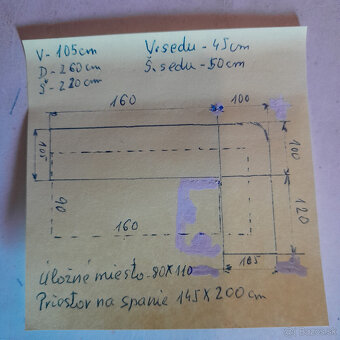 V - 105cm
V. sedu - 45 cm
D - 260 cm
Š. sedu - 50cm
Š - 220cm
160
100
105
100
90
120
160
105
Úložné miesto - 80X110
Priestor na spanie 145X200cm